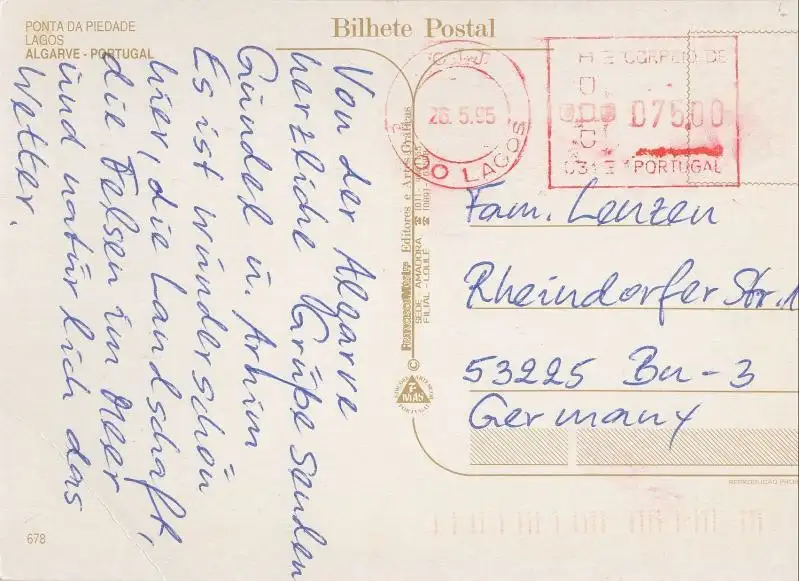 PONTA DA PIEDADE
LAGOS
ALGARVE - PORTUGAL
Bilhete Postal
Von der Algarve
herzliche Grüße senden
Gündel u. Achim
Es ist wunderschön
hier, die Landschaft,
die Felsen im Meer
und natürlich das
Wetter.
26.5.95
LAGOS
CORREIO DE
07500
PORTUGAL
Editores e Artes Gráficas
SEDE AMADORA
FILIAL - LOULÉ
©
Fam. Lenzen
Rheindorfer Str. 1
53225 Bn-3
Germany
678